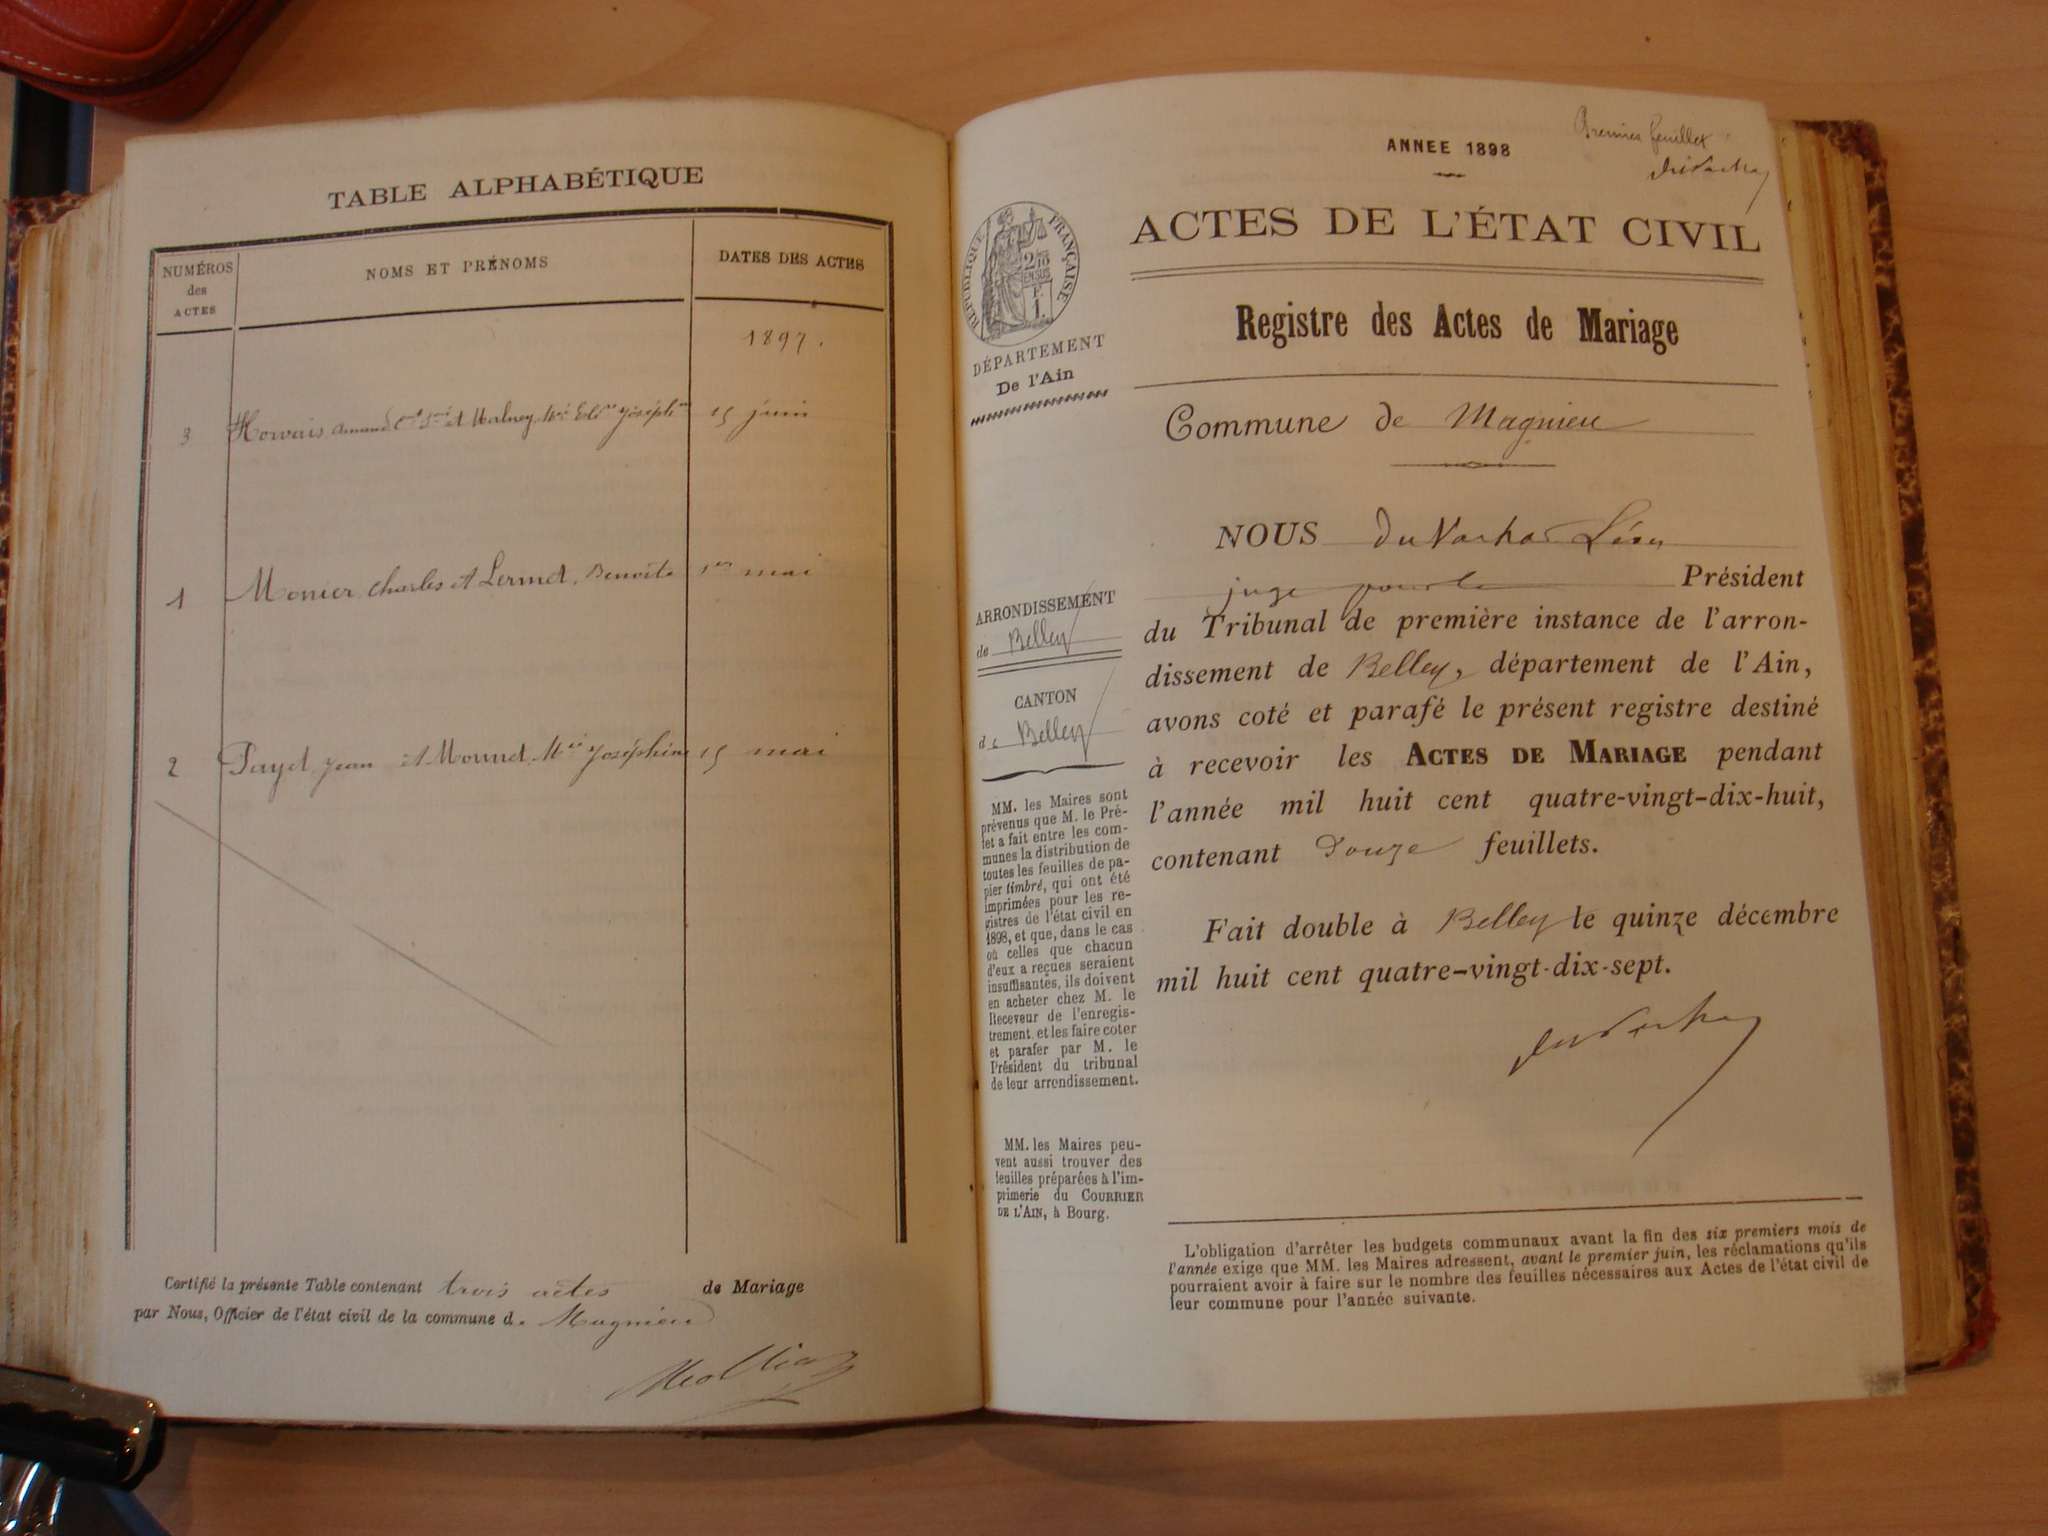 TABLE ALPHABÉTIQUE
NUMÉROS des ACTES
NOMS ET PRÉNOMS
DATES DES ACTES
1897.
3 et Marie Joséphine 15 juin
1 Monier Charles et Lermet, Benoite 1er mai
2 Payet Jean et Mounet Mie Joséphine 15 mai
Certifié la présente Table contenant trois actes de Mariage
par Nous, Officier de l'état civil de la commune de Magnieu
Premier feuillet
ANNEE 1898
ACTES DE L'ÉTAT CIVIL
RÉPUBLIQUE FRANÇAISE
2/10 EN SUS
F. 1.
DÉPARTEMENT
De l'Ain
Registre des Actes de Mariage
Commune de Magnieu
ARRONDISSEMENT
de Belley
CANTON
de Belley
MM. les Maires sont
prévenus que M. le Pré-
fet a fait entre les com-
munes la distribution de
toutes les feuilles de pa-
pier timbré, qui ont été
imprimées pour les re-
gistres de l'état civil en
1898, et que, dans le cas
où celles que chacun
d'eux a reçues seraient
insuffisantes, ils doivent
en acheter chez M. le
Receveur de l'enregis-
trement, et les faire coter
et parafer par M. le
Président du tribunal
de leur arrondissement.
MM. les Maires peu-
vent aussi trouver des
feuilles préparées à l'im-
primerie du COURRIER
DE L'AIN, à Bourg.
NOUS Léon
juge pour le Président
du Tribunal de première instance de l'arron-
dissement de Belley, département de l'Ain,
avons coté et parafé le présent registre destiné
à recevoir les ACTES DE MARIAGE pendant
l'année mil huit cent quatre-vingt-dix-huit,
contenant douze feuillets.
Fait double à Belley le quinze décembre
mil huit cent quatre-vingt-dix-sept.
L'obligation d'arrêter les budgets communaux avant la fin des six premiers mois de
l'année exige que MM. les Maires adressent, avant le premier juin, les réclamations qu'ils
pourraient avoir à faire sur le nombre des feuilles nécessaires aux Actes de l'état civil de
leur commune pour l'année suivante.